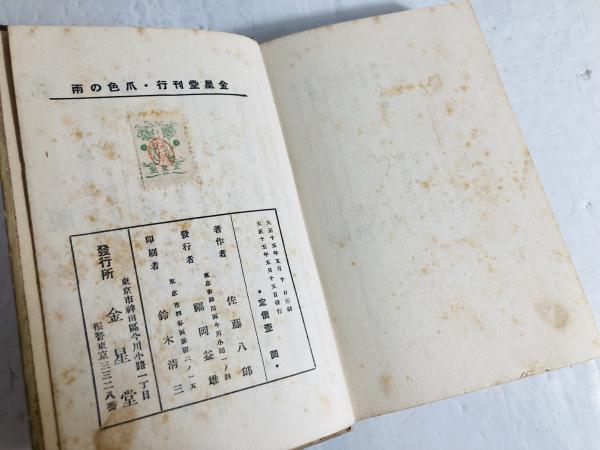 金星堂刊行・爪色の雨
金星堂
大正十五年五月十日印刷
大正十五年五月十五日發行
・定價壹圓・
著作者 佐藤八郎
東京市神田區今川小路一ノ四
發行者 福岡益雄
東京市四谷區新宿二ノ一五
印刷者 鈴木清三
東京市神田區今川小路一丁目
發行所 金星堂
振替東京三三二八番